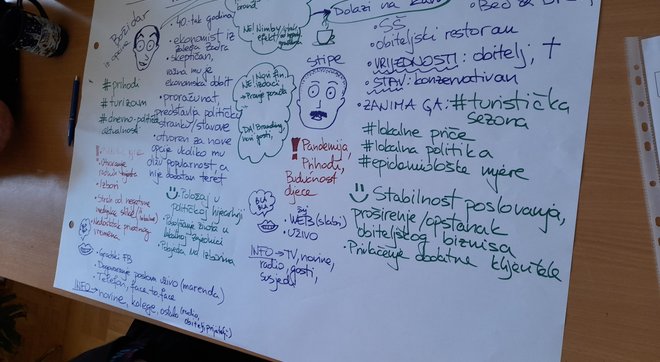 Božidar
40-tak godina
ekonomist iz
zaleđa Zadra
skeptičan,
važna mu je
ekonomska dobit
proračunat,
preslaguje političke
stranke/stavove
otvoren za nove
opcije ukoliko mu
dižu popularnost, a
nije dodatan teret
#prihodi
#turizam
#dnevno-politička
aktualnost
Izbori
Strah od negativne
Nedostatak privatnog
vremena
Položaj u
političkoj hijerarhiji
Poboljšanje života u
lokalnoj zajednici
Pobjeda na izborima
Gradski FB
Dogovaranje poslova uživo (marenda)
Telefon, face to face
INFO → novine, kolege, ostalo (radio,
obitelj, prijatelji)
brand
NE! Nimby
efekt
NE
Novi fin.
izdaci
DA! Branding,
novi gosti,
Dolazi na kavu
stipe
! Pandemija,
Prihodi,
Budućnost
djece
BLA
BLA
WEB (slabi)
UŽIVO
INFO → TV, novine,
radio, gosti,
susjedi
SŠ
obiteljski restoran
VRIJEDNOSTI: obitelj, †
STAV: konzervativan
ZANIMA GA: #turistička
sezona
#lokalne priče
#lokalna politika
#epidemiološke mjere
Stabilnost poslovanja,
proširenje/opstanak
obiteljskog biznisa
Privlačenje dodatne klijentele